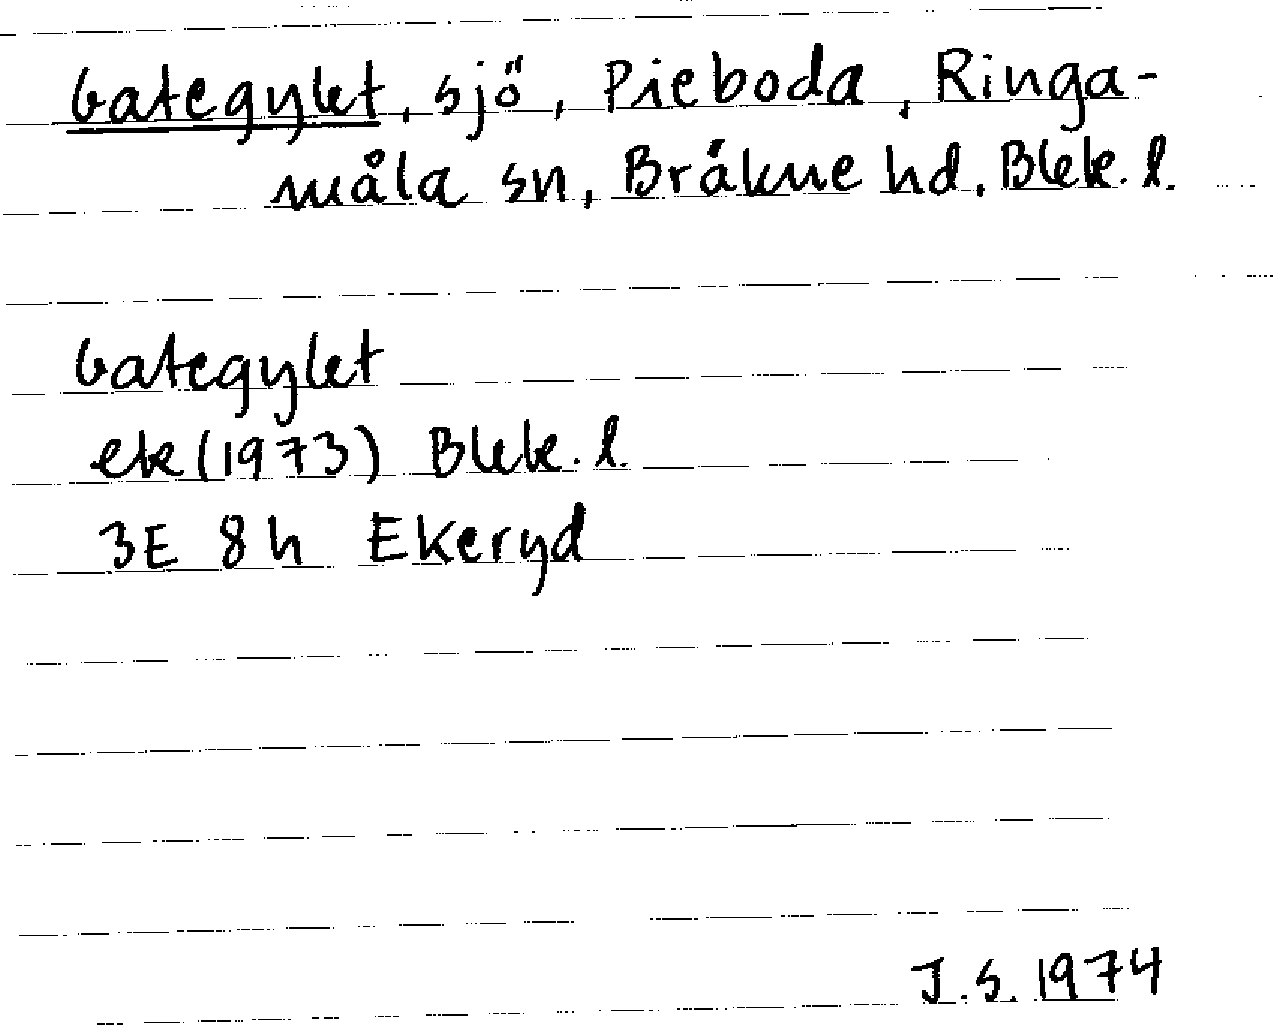 Gategylet, sjö, Pieboda, Ringa-
måla sn, Bräkne hd. Blek. l.
Gategylet
ek (1973) Blek. l.
3E 8h Ekeryd
J.S. 1974